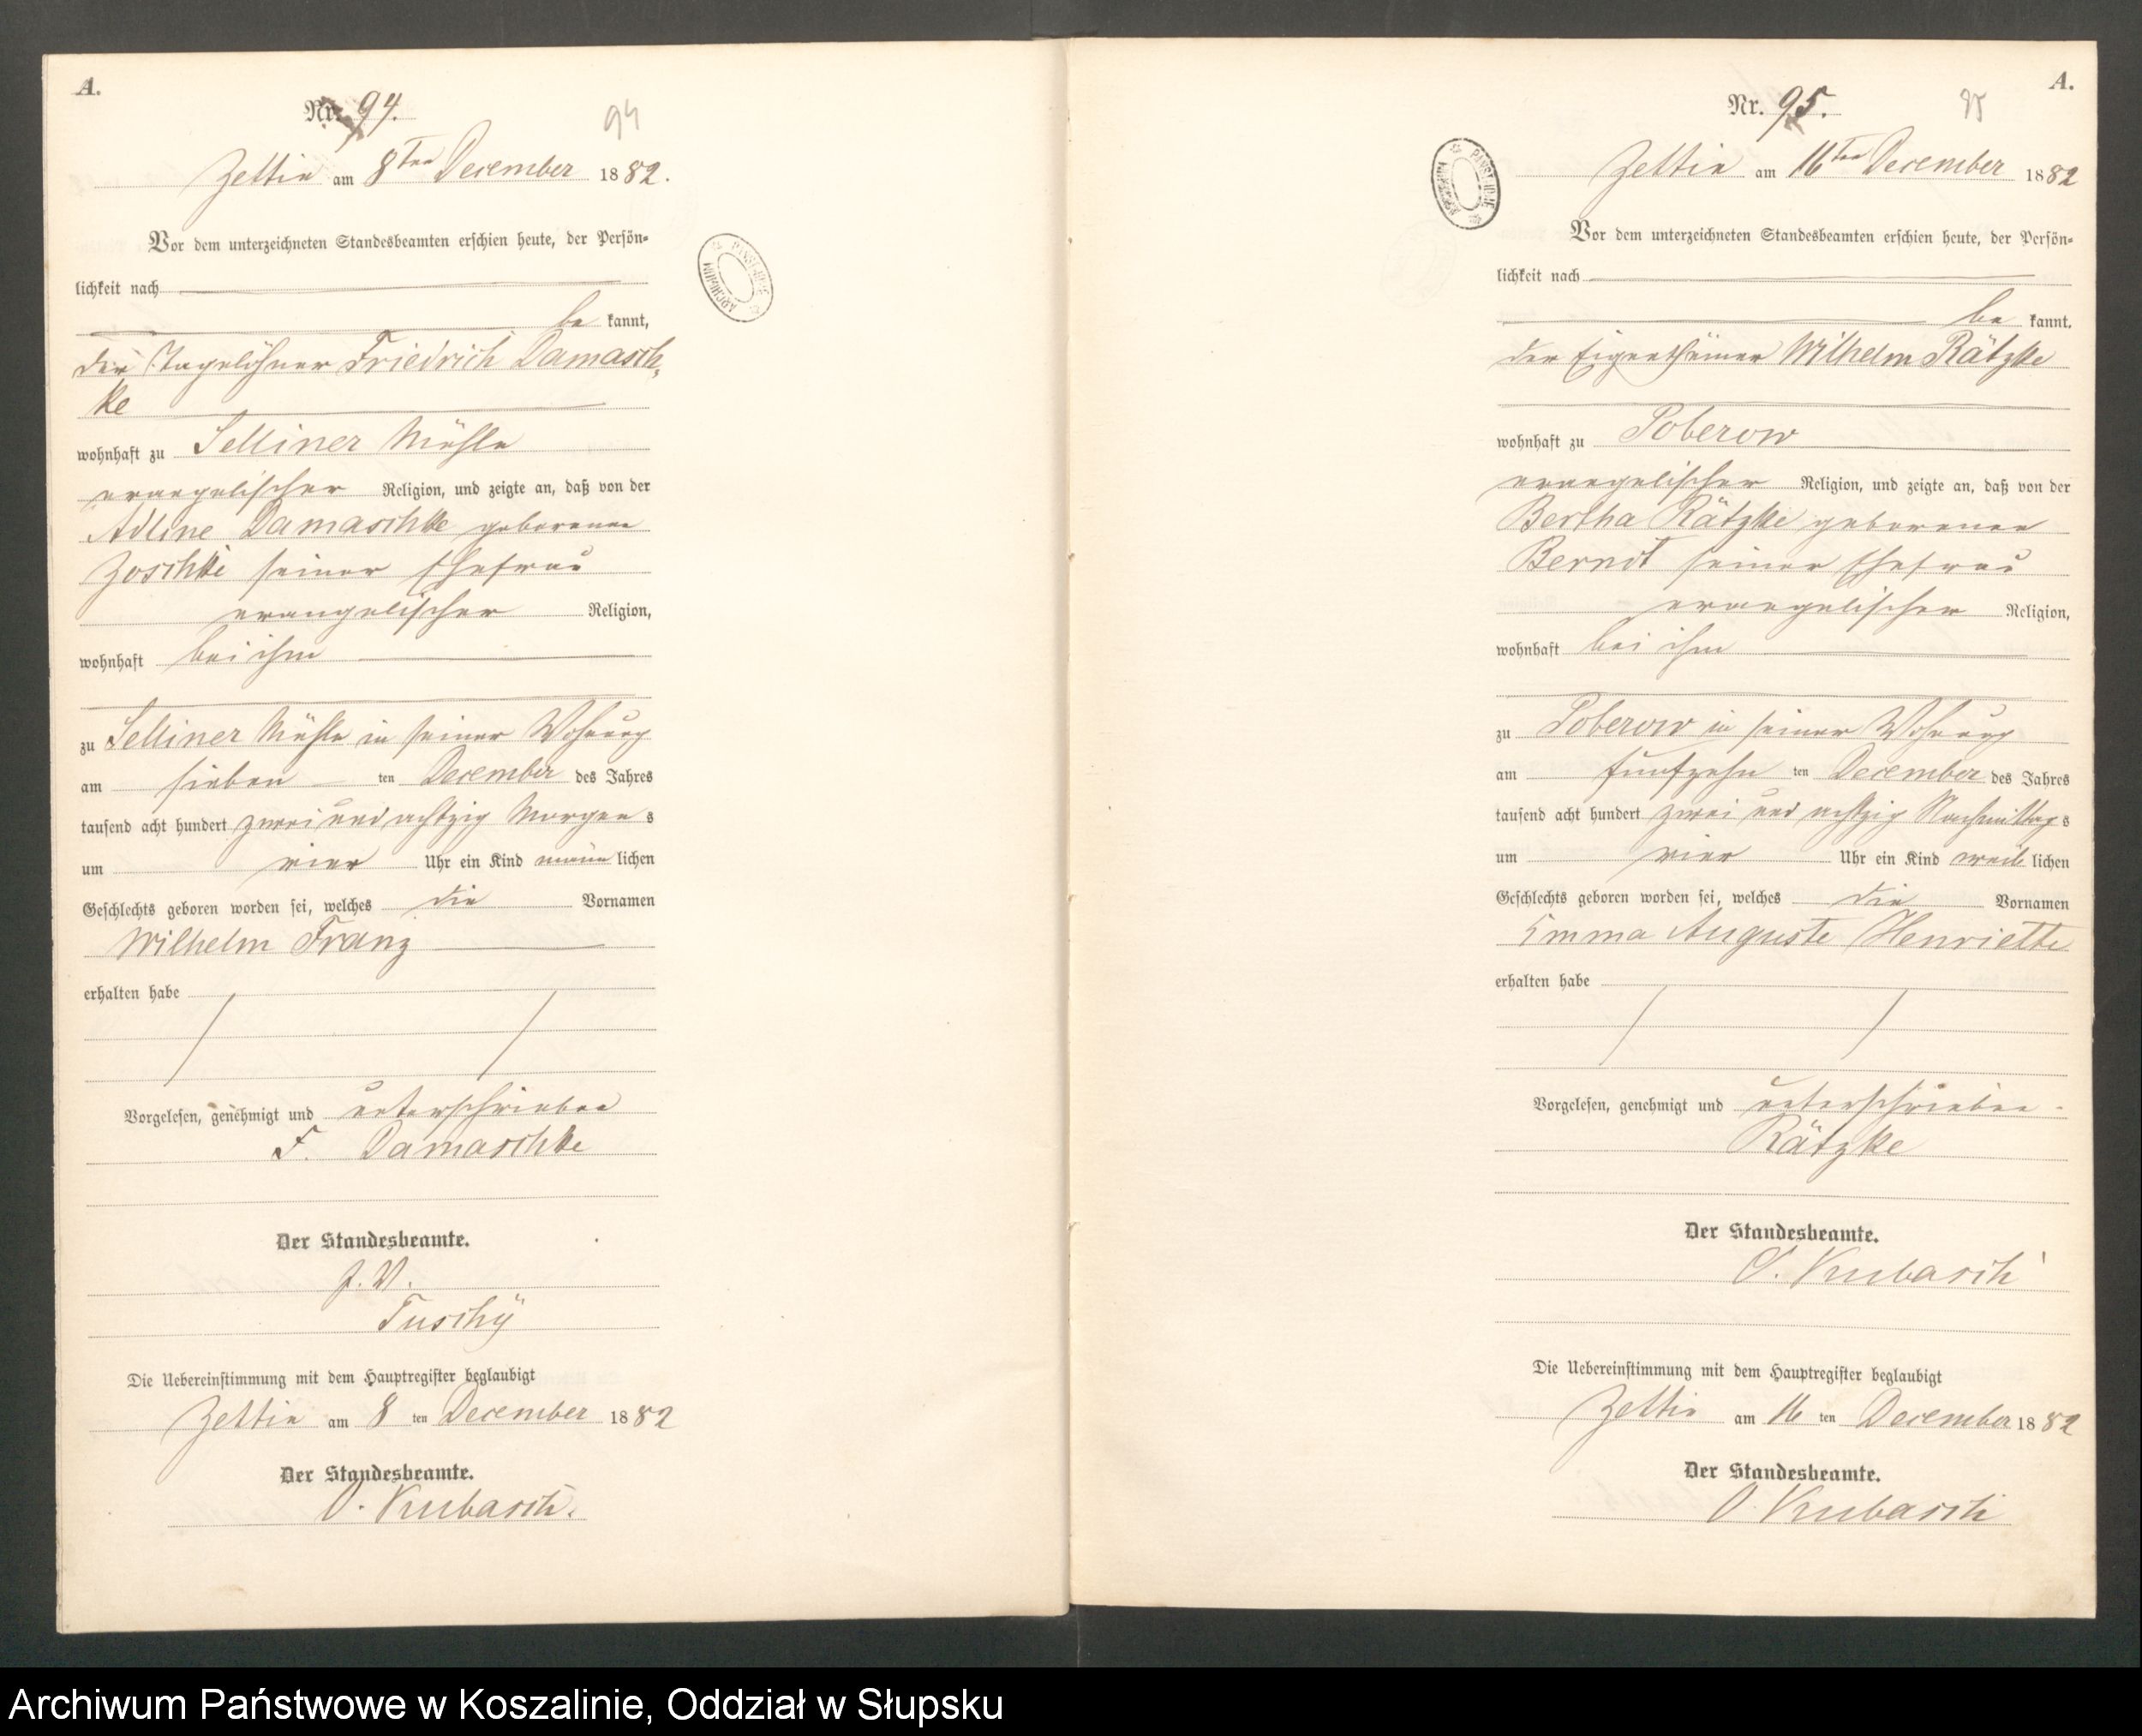 A.
Nr. 94.
94
Zettin am 8ten December 1882.
Vor dem unterzeichneten Standesbeamten erschien heute, der Persön-
lichkeit nach
be kannt,
der Tagelöhner Friedrich Damasch-
ke
wohnhaft zu Selliner Mühle
evangelischer Religion, und zeigte an, daß von der
Adline Damaschke geborenen
Zoschke seiner Ehefrau
evangelischer Religion,
wohnhaft bei ihm
zu Selliner Mühle in seiner Wohnung
am sieben ten December des Jahres
tausend acht hundert zwei und achtzig Morgen s
um vier Uhr ein Kind männlichen
Geschlechts geboren worden sei, welches die Vornamen
Wilhelm Franz
erhalten habe
Vorgelesen, genehmigt und unterschrieben
F. Damaschke
Der Standesbeamte.
J. V.
Tuschÿ
Die Uebereinstimmung mit dem Hauptregister beglaubigt
Zettin am 8 ten December 1882
Der Standesbeamte.
O. Kubasch.
ARCHIWUM PAŃSTWOWE
A.
Nr. 95.
95
Zettin am 16ten December 1882
Vor dem unterzeichneten Standesbeamten erschien heute, der Persön-
lichkeit nach
be kannt.
der Eigenthümer Wilhelm Rätzke
wohnhaft zu Poberow
evangelischer Religion, und zeigte an, daß von der
Bertha Rätzke geborenen
Berndt seiner Ehefrau
evangelischer Religion,
wohnhaft bei ihm
zu Poberow in seiner Wohnung
am fünfzehn ten December des Jahres
tausend acht hundert zwei und achtzig Nachmittag s
um vier Uhr ein Kind weiblichen
Geschlechts geboren worden sei, welches die Vornamen
Emma Auguste Henriette
erhalten habe
Vorgelesen, genehmigt und unterschrieben
Rätzke
Der Standesbeamte.
O. Kubasch
Die Uebereinstimmung mit dem Hauptregister beglaubigt
Zettin am 16 ten December 1882
Der Standesbeamte.
O. Kubasch
ARCHIWUM PAŃSTWOWE
Archiwum Państwowe w Koszalinie, Oddział w Słupsku